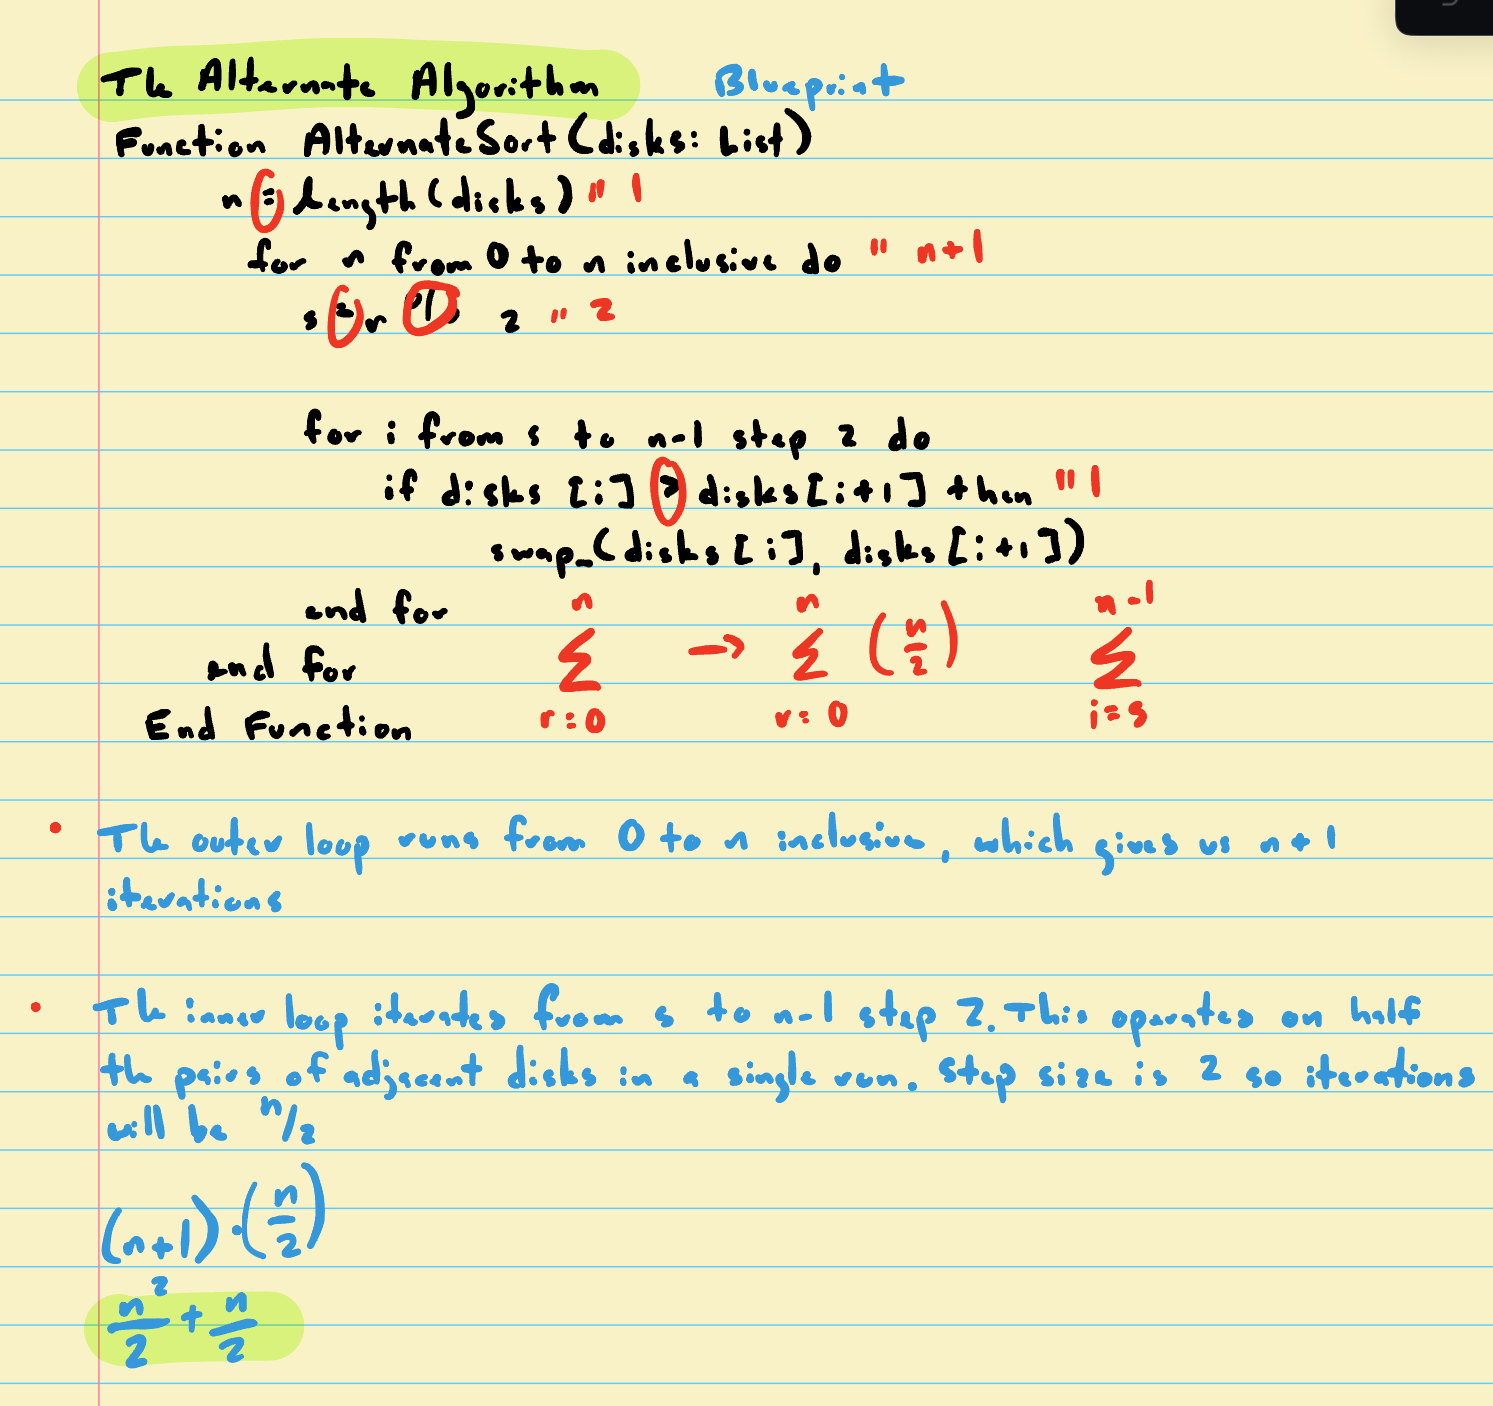 The Alternate Algorithm Blueprint
Function AlternateSort(disks: List)
n = length(disks) " 1
for r from 0 to n inclusive do " n+1
s = r % 2 " 2
for i from s to n-1 step 2 do
if disks [i] > disks[i+1] then " 1
swap_(disks[i], disks[i+1])
end for
end for
End Function
n
Σ
r=0
→
n
Σ (n/2)
r=0
n-1
Σ
i=s
• The outer loop runs from 0 to n inclusive, which gives us n+1
iterations
• The inner loop iterates from s to n-1 step 2. This operates on half
the pairs of adjacent disks in a single run. Step size is 2 so iterations
will be n/2
(n+1)·(n/2)
n²/2 + n/2